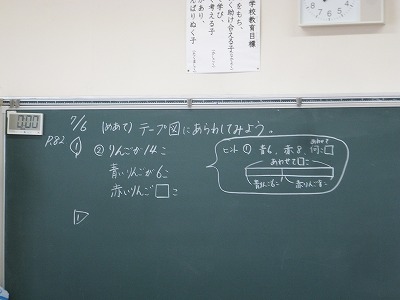 学校教育目標
をもち、
く助け合える子
考える子
学び、
があり、
んばりぬく子
0:00
7/6 (めあて) テープ図にあらわしてみよう。
P.82
① ② りんごが14こ
青いりんごが6こ
赤いりんご□こ
ヒント ① 青6、赤8、あわせて何こ□
あわせて□こ
青りんご6こ 赤りんご8こ
1
8 7 6 5 4